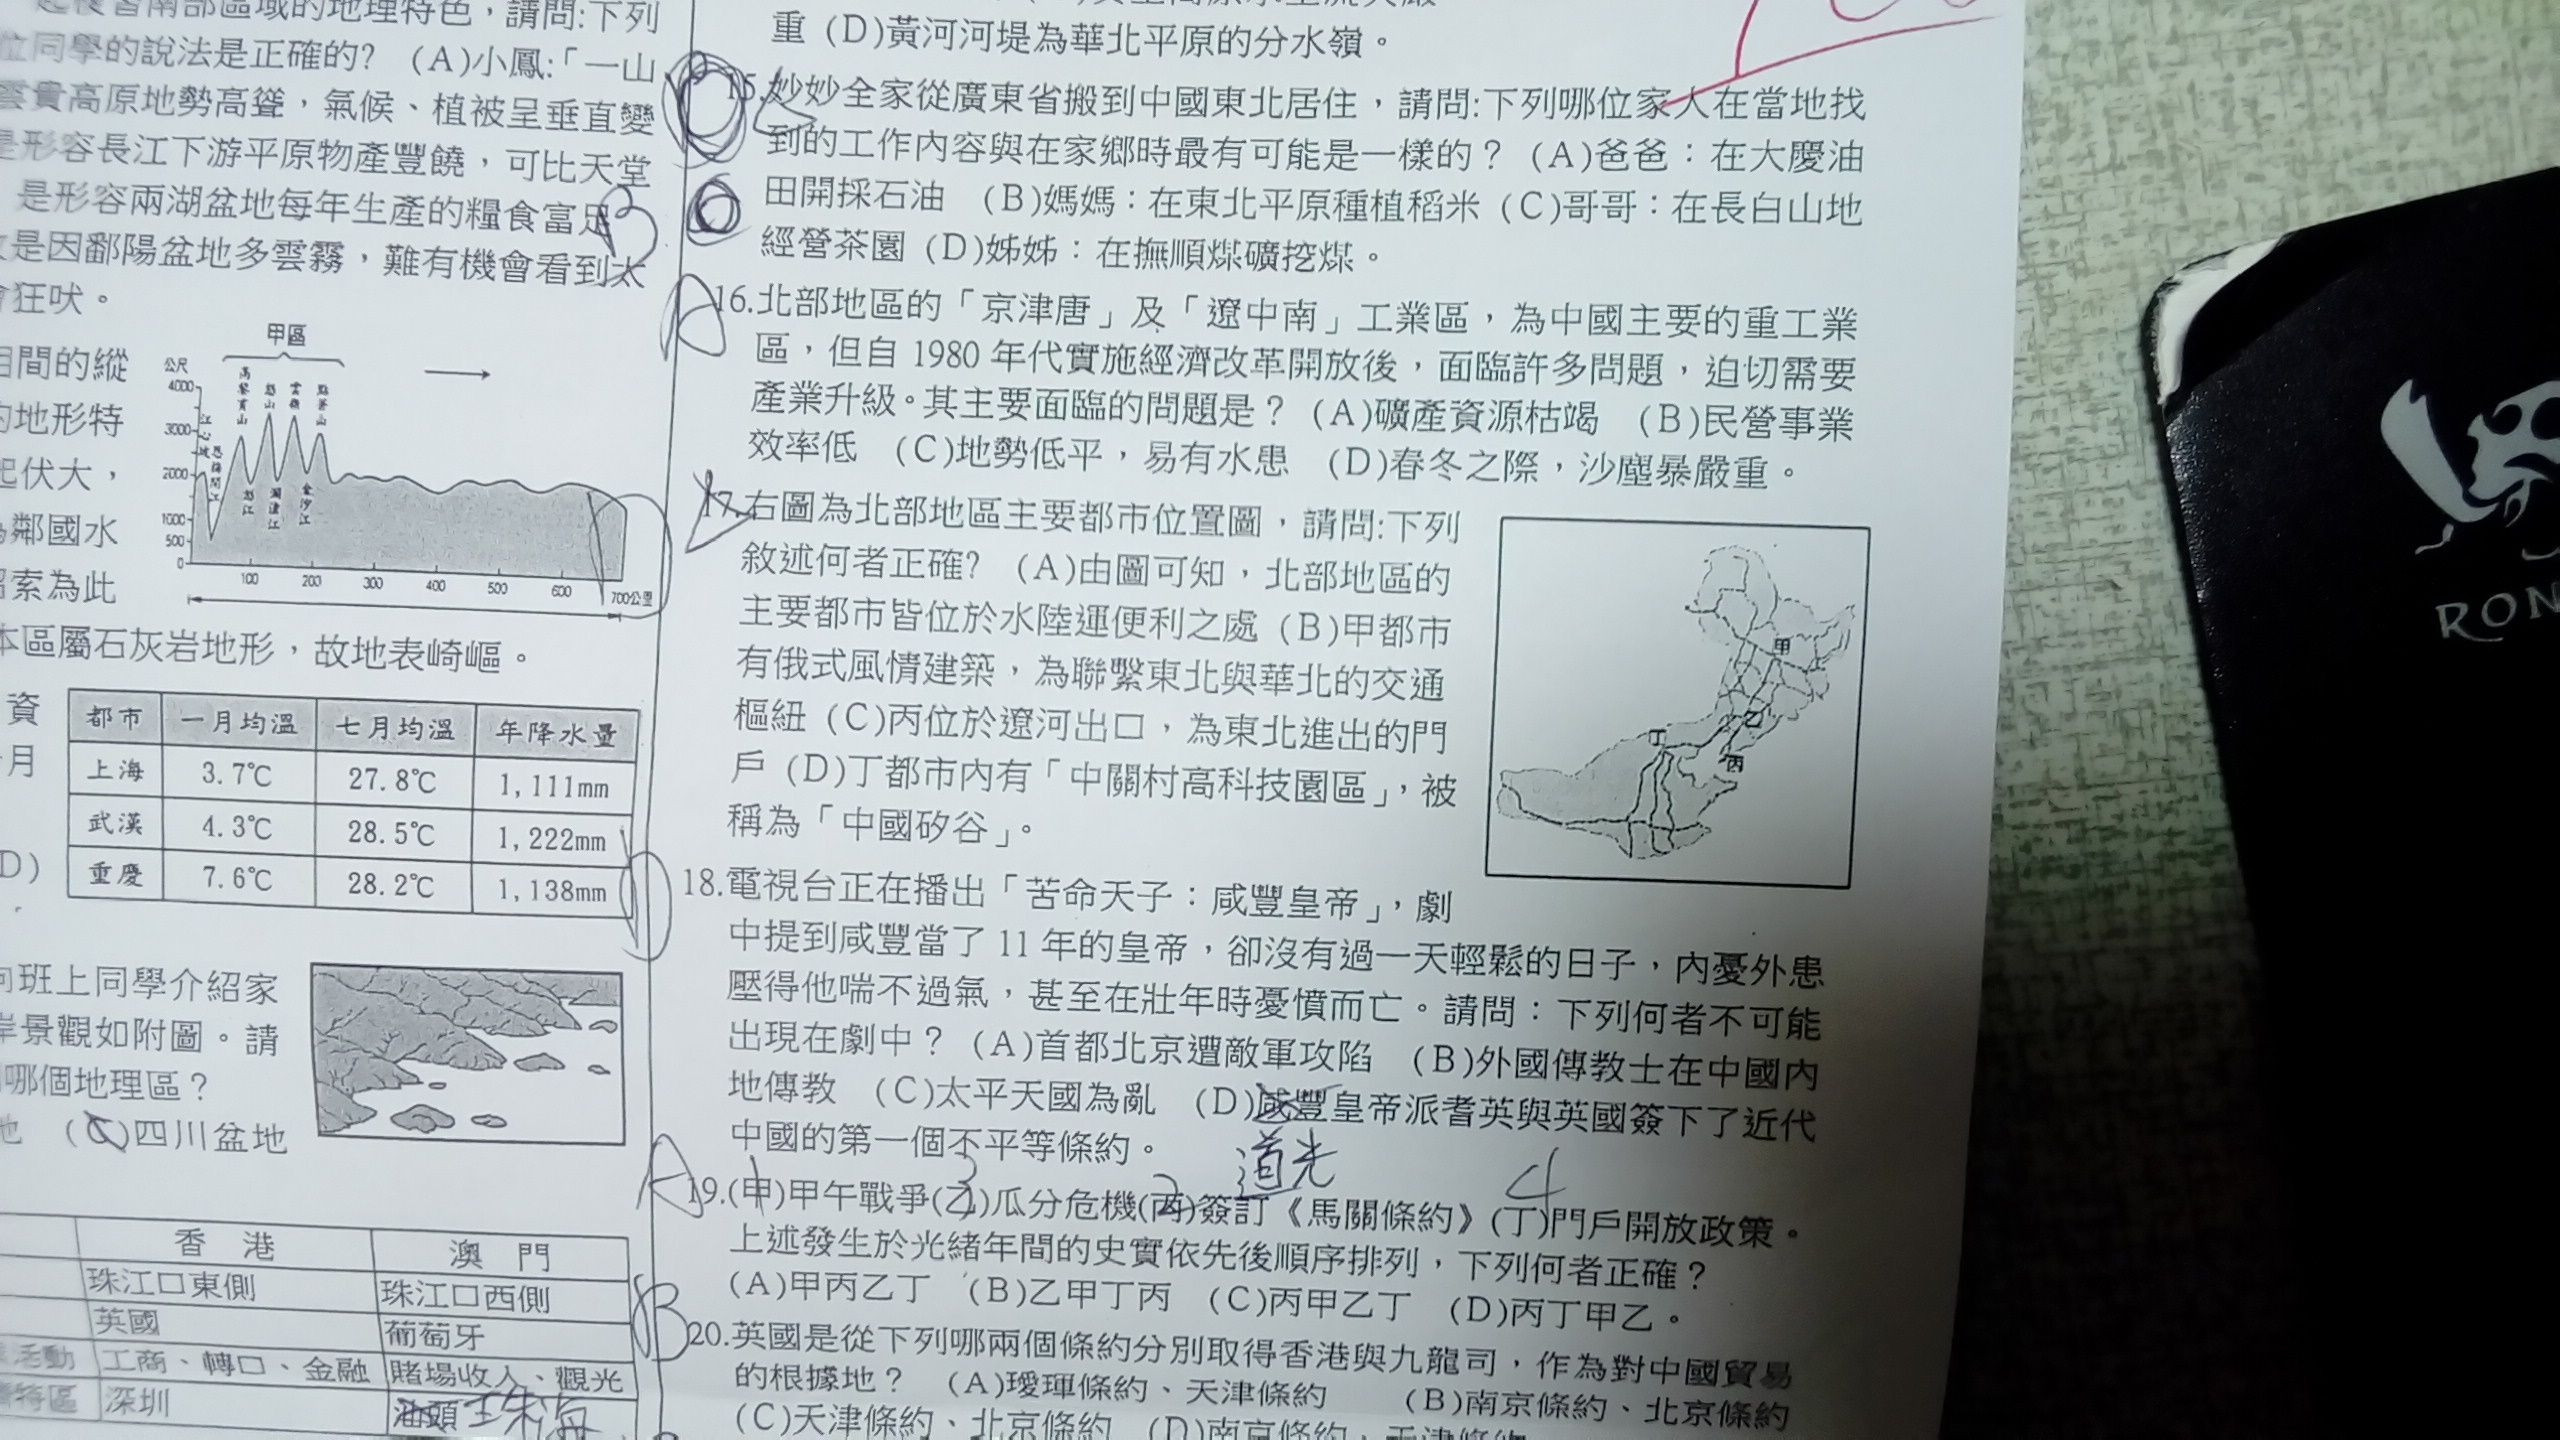 起後皆南部區域的地理特色，請問:下列
位同學的說法是正確的? (A)小鳳:「一山
雲貴高原地勢高聳，氣候、植被呈垂直變
是形容長江下游平原物產豐饒，可比天堂
是形容兩湖盆地每年生產的糧食富足
B
故是因鄱陽盆地多雲霧，難有機會看到太
會狂吠。
相間的縱
的地形特
起伏大，
為鄰國水
留索為此
甲區
公尺
4000
3000
2000
1000
500
0
江心坡
恩梅開江
高黎貢山
怒江
怒山
瀾滄江
雲嶺
金沙江
點蒼山
100 200 300 400 500 600 700公里
本區屬石灰岩地形，故地表崎嶇。
資
月
D)
都市 一月均溫 七月均溫 年降水量
上海 3.7℃ 27.8℃ 1,111mm
武漢 4.3℃ 28.5℃ 1,222mm
重慶 7.6℃ 28.2℃ 1,138mm
向班上同學介紹家
岸景觀如附圖。請
哪個地理區?
地 (C)四川盆地
香港 澳門
珠江口東側 珠江口西側
英國 葡萄牙
活動 工商、轉口、金融 賭場收入、觀光
特區 深圳 汕頭 珠海
重 (D)黃河河堤為華北平原的分水嶺。
15.妙妙全家從廣東省搬到中國東北居住，請問:下列哪位家人在當地找
到的工作內容與在家鄉時最有可能是一樣的? (A)爸爸：在大慶油
田開採石油 (B)媽媽：在東北平原種植稻米 (C)哥哥：在長白山地
經營茶園 (D)姊姊：在撫順煤礦挖煤。
A
16.北部地區的「京津唐」及「遼中南」工業區，為中國主要的重工業
區，但自 1980 年代實施經濟改革開放後，面臨許多問題，迫切需要
產業升級。其主要面臨的問題是? (A)礦產資源枯竭 (B)民營事業
效率低 (C)地勢低平，易有水患 (D)春冬之際，沙塵暴嚴重。
D
17.右圖為北部地區主要都市位置圖，請問:下列
敘述何者正確? (A)由圖可知，北部地區的
主要都市皆位於水陸運便利之處 (B)甲都市
有俄式風情建築，為聯繫東北與華北的交通
樞紐 (C)丙位於遼河出口，為東北進出的門
戶 (D)丁都市內有「中關村高科技園區」，被
稱為「中國矽谷」。
甲
乙
丙
丁
D
18.電視台正在播出「苦命天子：咸豐皇帝」，劇
中提到咸豐當了 11 年的皇帝，卻沒有過一天輕鬆的日子，內憂外患
壓得他喘不過氣，甚至在壯年時憂憤而亡。請問：下列何者不可能
出現在劇中? (A)首都北京遭敵軍攻陷 (B)外國傳教士在中國內
地傳教 (C)太平天國為亂 (D)咸豐皇帝派耆英與英國簽下了近代
中國的第一個不平等條約。
道光
A
1 3 2 4
19.(甲)甲午戰爭(乙)瓜分危機(丙)簽訂《馬關條約》(丁)門戶開放政策。
上述發生於光緒年間的史實依先後順序排列，下列何者正確?
(A)甲丙乙丁 (B)乙甲丁丙 (C)丙甲乙丁 (D)丙丁甲乙。
B
20.英國是從下列哪兩個條約分別取得香港與九龍司，作為對中國貿易
的根據地? (A)璦琿條約、天津條約 (B)南京條約、北京條約
(C)天津條約、北京條約 (D)南京條約、天津條約
RON